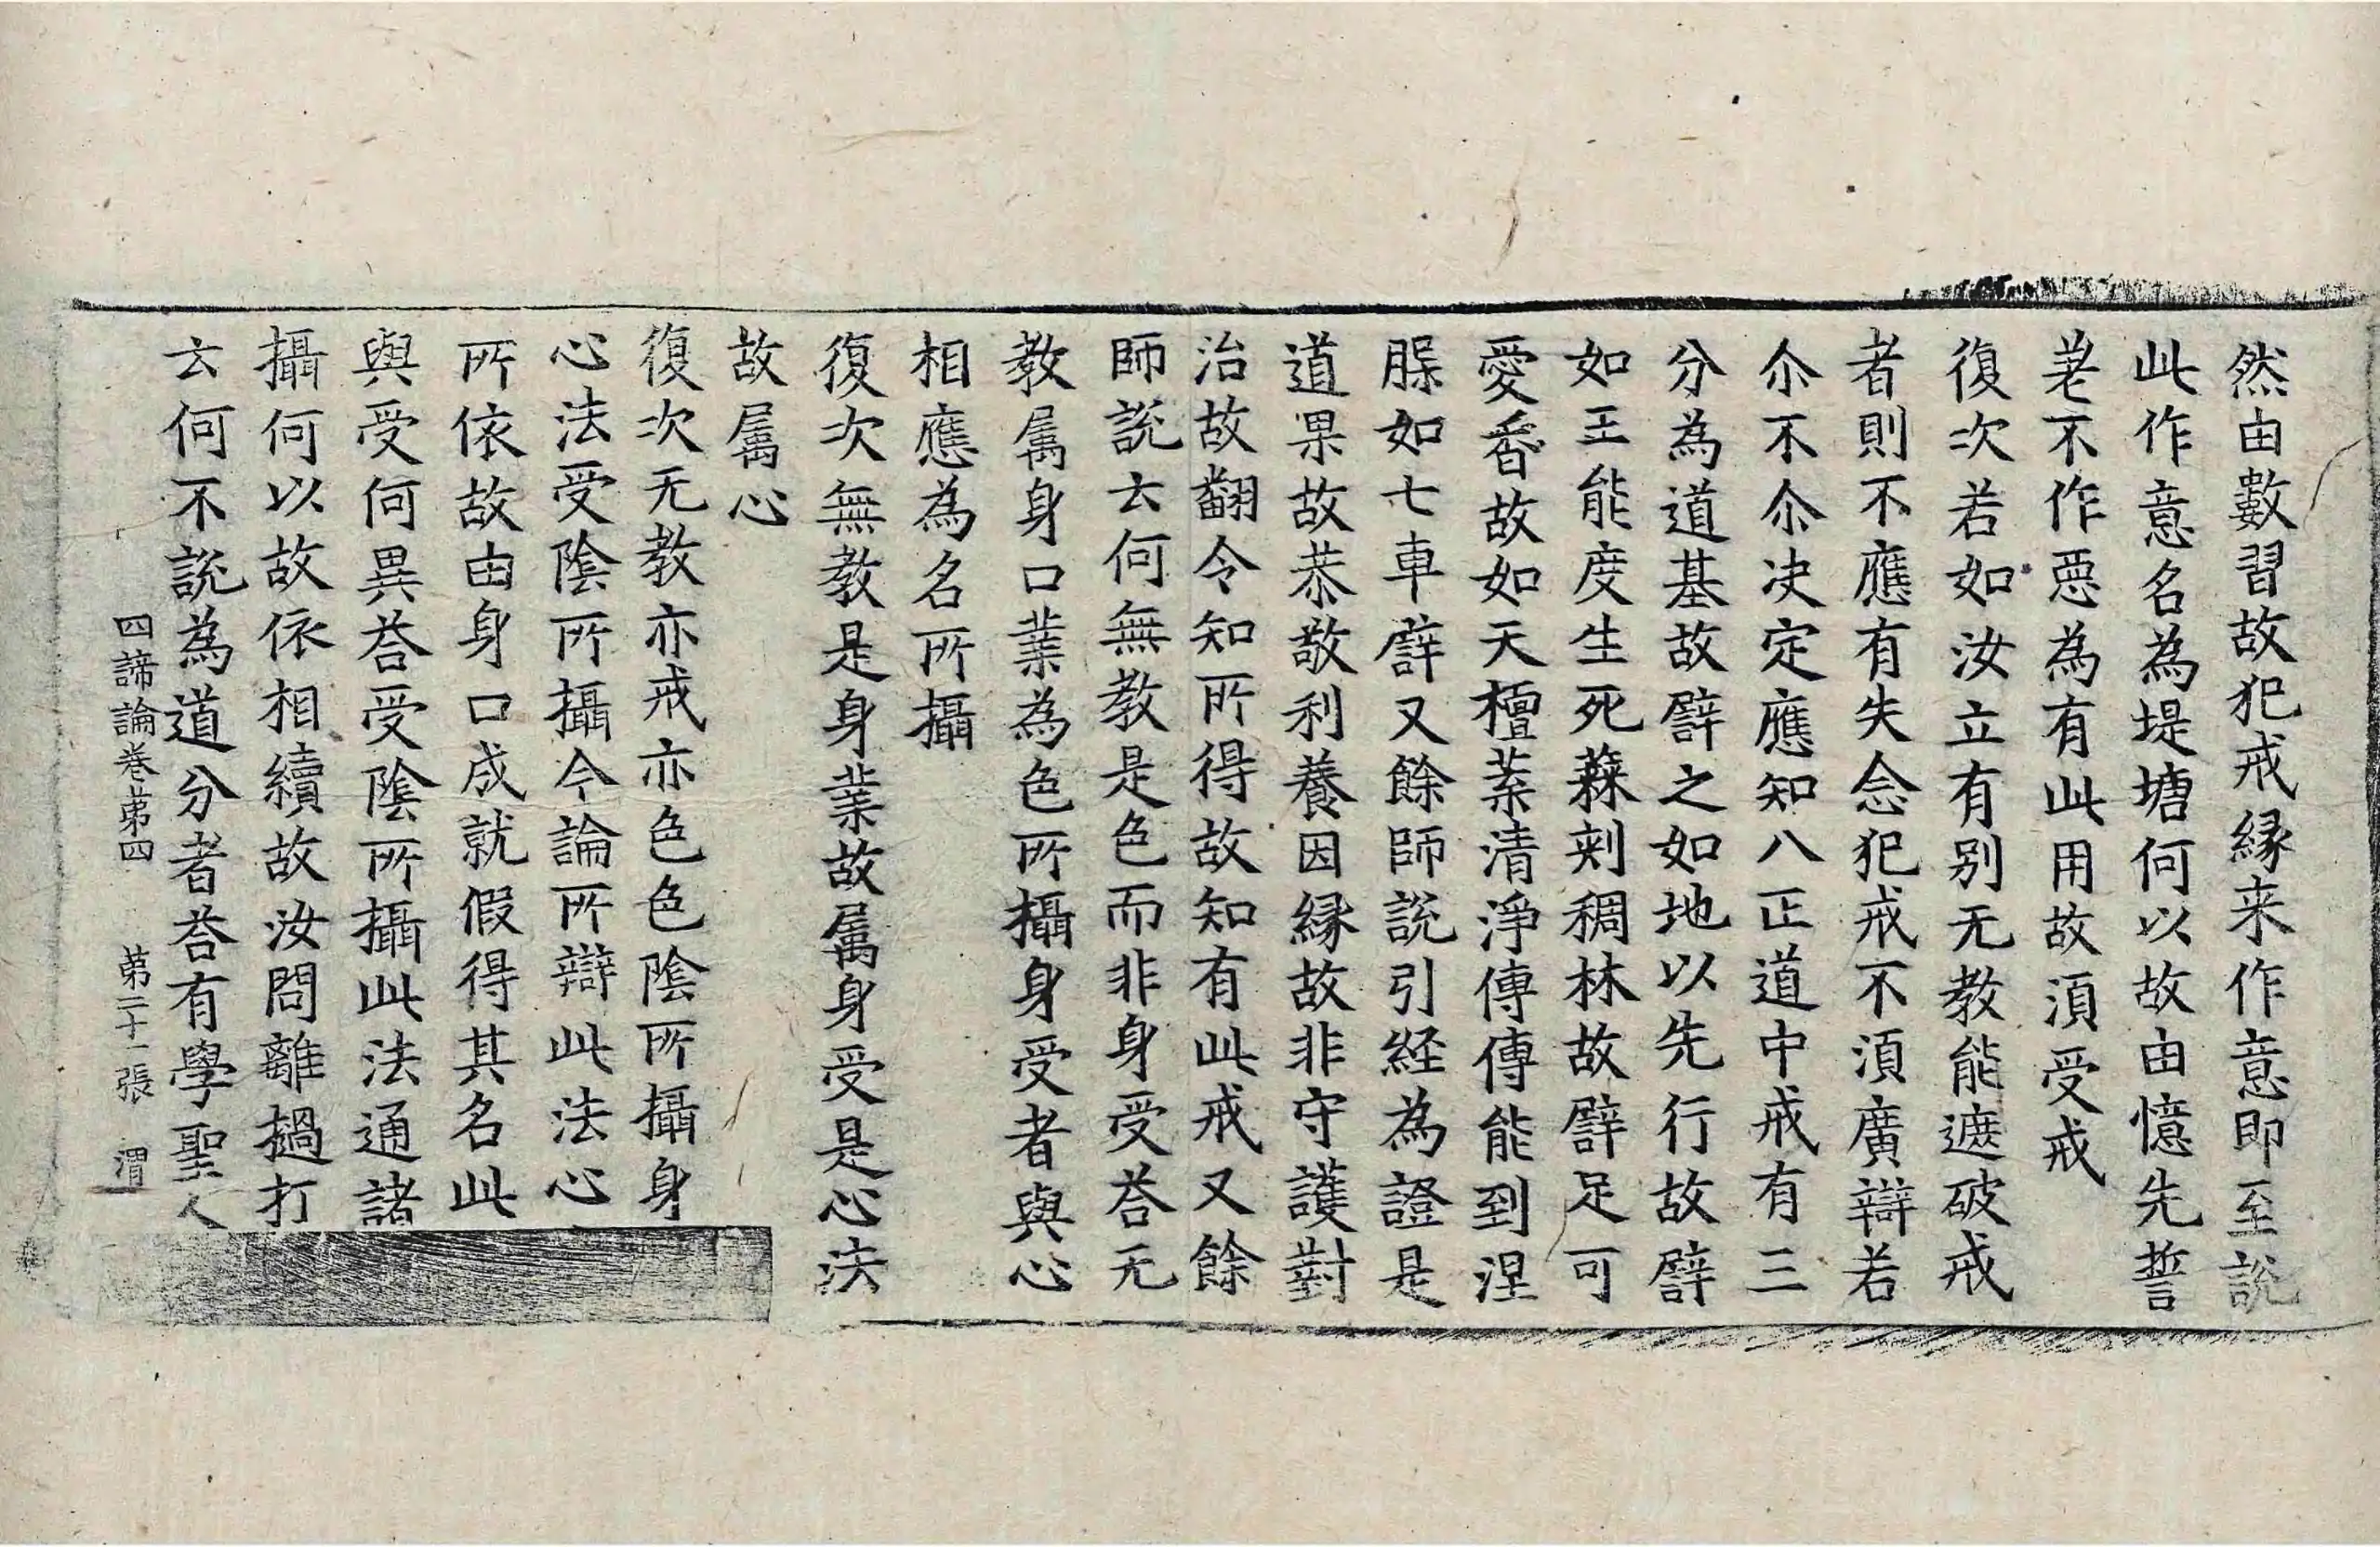 然由數習故犯戒縁来作意即至説
此作意名為堤塘何以故由憶先誓
老不作惡為有此用故湏受戒
復次若如汝立有别无教能遮破戒
者則不應有失念犯戒不湏廣辯若
尒不尒决定應知八正道中戒有三
分為道基故譬之如地以先行故譬
如王能度生死蕀刺稠林故譬足可
愛香故如天檀葉清淨傳傳能到涅
脲如七車譬又餘師說引経為證是
道果故恭敬利養因縁故非守護對
治故翻令知所得故知有此戒又餘
師說云何無教是色而非身受荅无
教属身口業為色所攝身受者與心
相應為名所攝
復次無教是身業故属身受是心法
故属心
復次无教亦戒亦色色陰所攝身
心法受陰所攝今論所辯此法心
所依故由身口成就假得其名此
與受何異荅受陰所攝此法通諸
攝何以故依相續故汝問離撾打
云何不說為道分者荅有學聖人
四諦論卷苐四 苐二十一張 渭